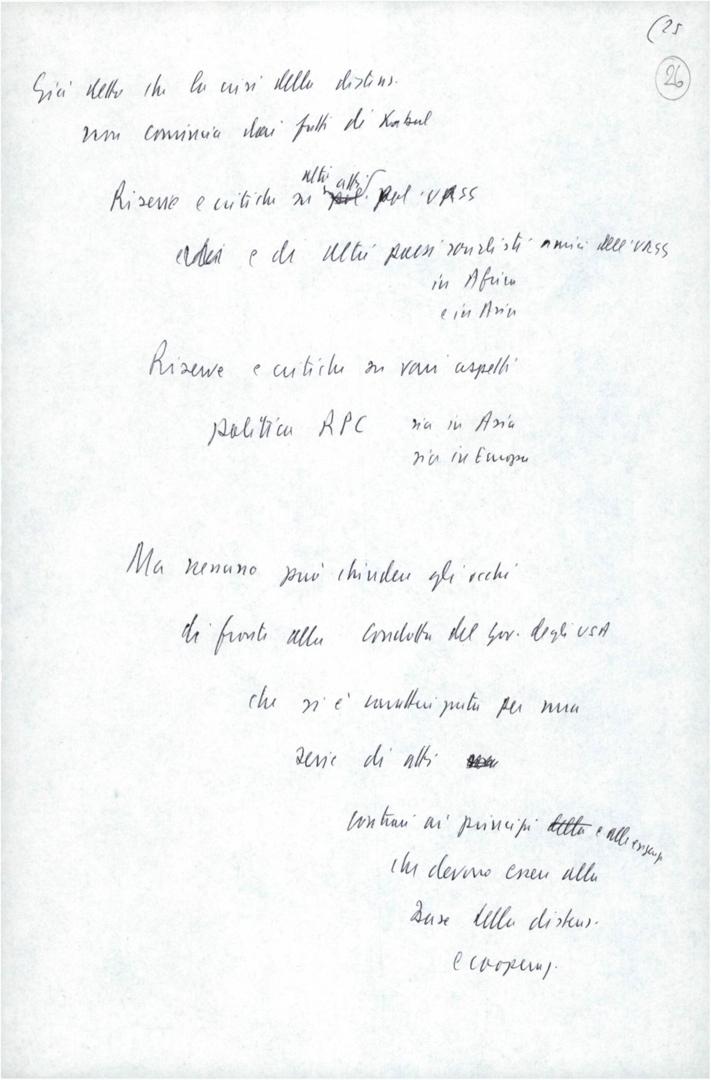 (25
26
Già detto che la crisi della distens.
non comincia dai fatti di Kabul
altri atti
Riserve e critiche su pol. URSS
e di altri paesi socialisti amici dell'URSS
in Africa
e in Asia
Riserve e critiche su vari aspetti
politica RPC sia in Asia
sia in Europa
Ma nessuno può chiudere gli occhi
di fronte alla condotta del Gov. degli USA
che si è caratterizzata per una
serie di atti
contrari ai principi della e alle esigenze
che devono essere alla
base della distens.
e cooperaz.